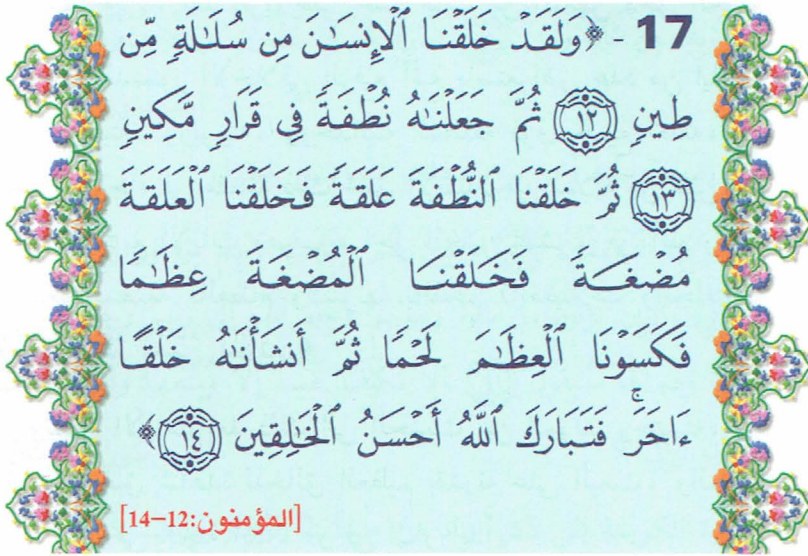 17 - ﴿وَلَقَدْ خَلَقْنَا ٱلْإِنسَـٰنَ مِن سُلَـٰلَةٍ مِّن
طِينٍ ﴿١٢﴾ ثُمَّ جَعَلْنَـٰهُ نُطْفَةً فِى قَرَارٍ مَّكِينٍ
﴿١٣﴾ ثُمَّ خَلَقْنَا ٱلنُّطْفَةَ عَلَقَةً فَخَلَقْنَا ٱلْعَلَقَةَ
مُضْغَةً فَخَلَقْنَا ٱلْمُضْغَةَ عِظَـٰمًا
فَكَسَوْنَا ٱلْعِظَـٰمَ لَحْمًا ثُمَّ أَنشَأْنَـٰهُ خَلْقًا
ءَاخَرَ ۚ فَتَبَارَكَ ٱللَّهُ أَحْسَنُ ٱلْخَـٰلِقِينَ ﴿١٤﴾﴾
[المؤمنون:12–14]